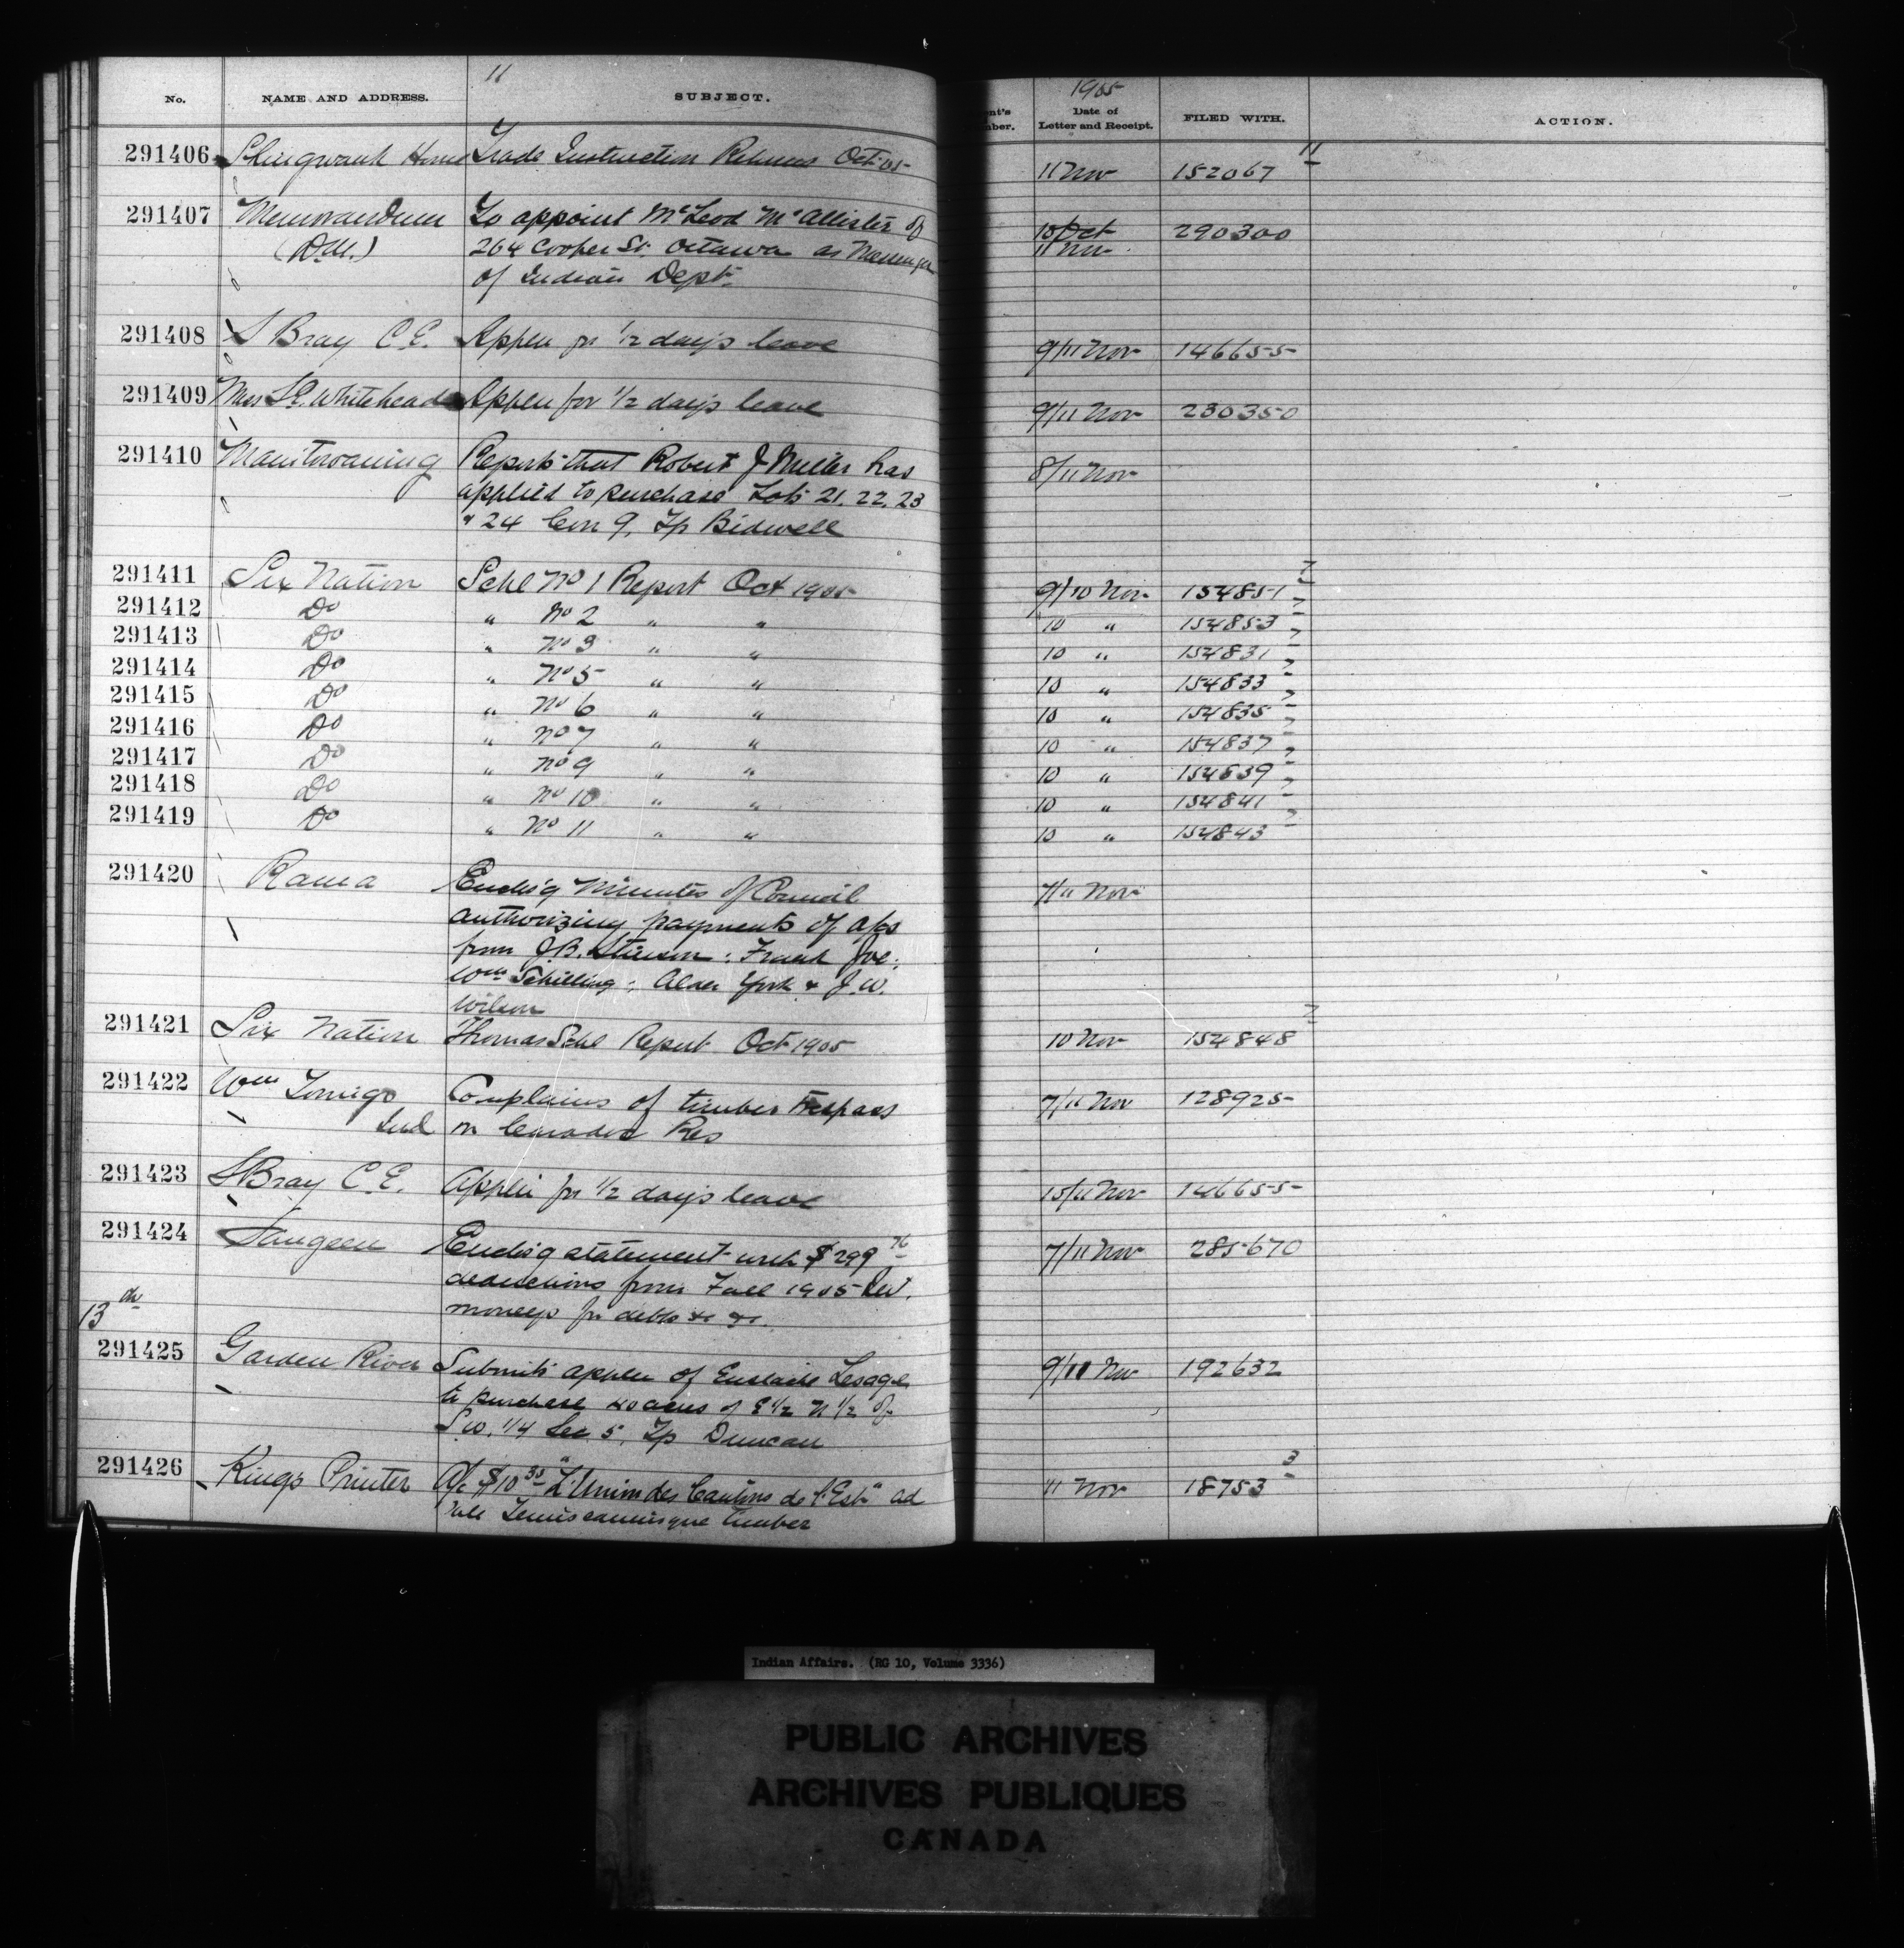 11
1905
No. NAME AND ADDRESS. SUBJECT. ent's nber. Date of Letter and Receipt. FILED WITH. ACTION.
291406 Shingwauk Home Trade Instruction Returns Oct. 05 11 Nov 152067 11
291407 Memorandum To appoint McLeod McAllister of 10 Oct 290300
(D.M.) 264 Cooper St. Ottawa as Messenger 11 Nov
of Indian Dept.
291408 S Bray C.E. Applen for 1/2 day's leave 9/11 Nov 146655
291409 Miss L.E. Whitehead Applen for 1/2 day's leave 9/11 Nov 230350
291410 Manitowaning Reports that Robert J Miller has 8/11 Nov
applied to purchase Lots 21, 22, 23
& 24 Con 9, Tp Bidwell
291411 Six Nation Schl No 1 Report Oct 1905 9/10 Nov 154851 7
291412 Do " No 2 " " 10 " 154853 7
291413 Do " No 3 " " 10 " 154831 7
291414 Do " No 5 " " 10 " 154833 7
291415 Do " No 6 " " 10 " 154835 7
291416 Do " No 7 " " 10 " 154837 7
291417 Do " No 9 " " 10 " 154839 7
291418 Do " No 10 " " 10 " 154841 7
291419 Do " No 11 " " 10 " 154843 7
291420 Rama Enclos'g Minutes of Council 7/11 Nov
authorizing payments of a/cs
from J.B. Stinson: Frank Joe:
Wm Schilling: Alder York & J.W.
Wilson
291421 Six Nation Thomas Schl Report Oct 1905 10 Nov 154848 7
291422 Wm Tomigo Complains of timber trespass 7/11 Nov 128925
Ind on Caradoc Res
291423 S Bray C.E. Applen for 1/2 day's leave 10/11 Nov 146655
291424 Saugeen Enclos'g statement with $299 76 7/11 Nov 285670
deductions from Fall 1905 Int.
moneys for debts &c &c.
13th
291425 Garden River Submits applen of Eustache Lesage 9/11 Nov 192632
to purchase 40 acres of E 1/2 N 1/2 of
S.W. 1/4 Sec 5, Tp Duncan
291426 King's Printer A/c $10 30 "L'Union des Cantons de l'Est" ad 11 Nov 18753 3
sale Temiscamingue timber
Indian Affairs. (RG 10, Volume 3336)
PUBLIC ARCHIVES
ARCHIVES PUBLIQUES
CANADA